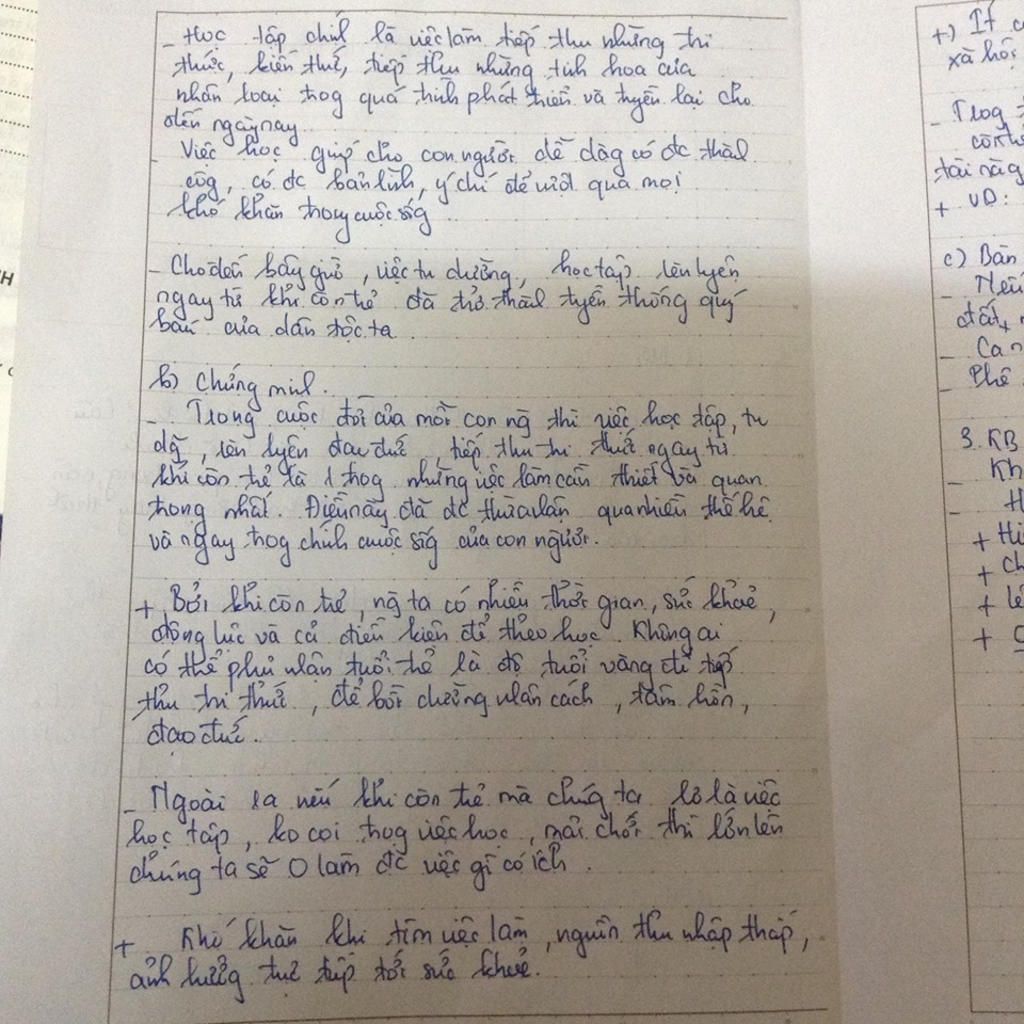 - Học tập chính là việc làm tiếp thu những tri
thức, kiến thức, tiếp thu những tinh hoa của
nhân loại trog quá trình phát triển và truyền lại cho
đến ngày nay.
- Việc học giúp cho con người dễ dàg có đc thàh
côg, có đc bản lĩnh, ý chí để vượt qua mọi
khó khăn trong cuộc sốg
- Cho đến bây giờ, việc tu dưỡng, học tập, rèn luyện
ngay từ khi còn trẻ đã trở thàh truyền thống quý
báu của dân tộc ta
b) Chứng minh.
- Trong cuộc đời của mỗi con ng thì việc học tập, tu
dg, rèn luyện đạo đức, tiếp thu tri thức ngay từ
khi còn trẻ là 1 trog những việc làm cần thiết và quan
trọng nhất. Điều này đã đc thừa nhận qua nhiều thế hệ
và ngay trog chính cuộc sốg của con người.
+ Bởi khi còn trẻ, ng ta có nhiều thời gian, sức khoẻ,
động lực và cả điều kiện để theo học. Không ai
có thể phủ nhận tuổi trẻ là độ tuổi vàng để tiếp
thu tri thức, để bồi dưỡng nhân cách, tâm hồn,
đạo đức.
- Ngoài ra nếu khi còn trẻ mà chúg ta lơ là việc
học tập, ko coi trọg việc học, mải chơi thì lớn lên
chúng ta sẽ 0 làm đc việc gì có ích.
+ Khó khăn khi tìm việc làm, nguồn thu nhập thấp,
ảnh hưởng trực tiếp tới sức khoẻ.
+) Ít
xã hội
- Trog
còn
tài năg
+ VD:
c) Bàn
- Nếu
đất
-
- Phê
3. KB
- Kh
- H
+ Hi
+ Ch
+ lê
+